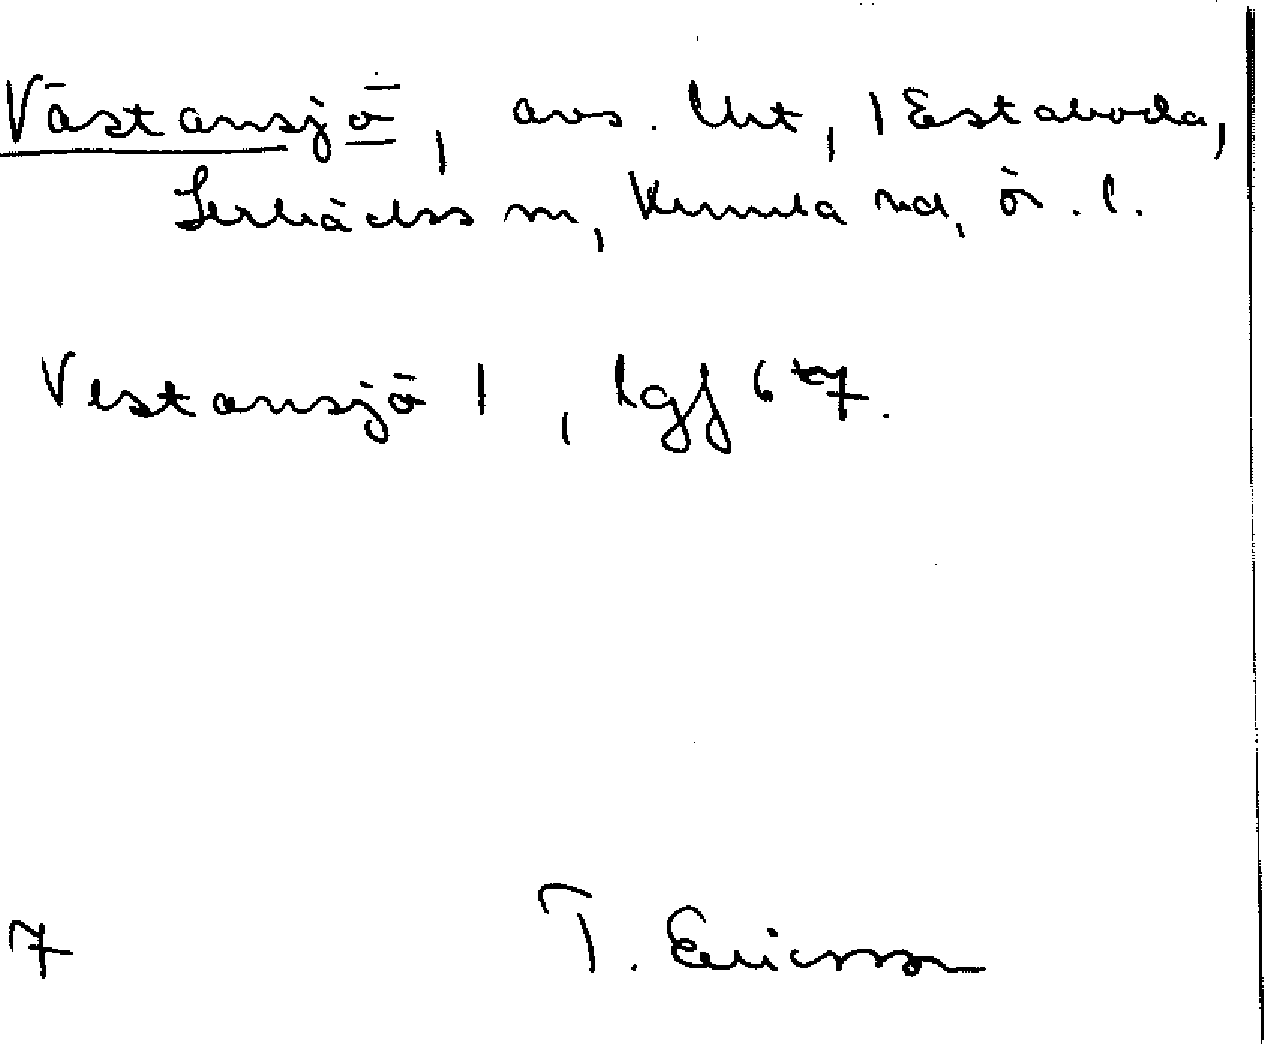 Västansjö, avs. lht, 1 Estaboda,
Lerbäcks sn, Kumla hd, ör. l.
Vestansjö 1, lgf 67.
7 T. Ericsson